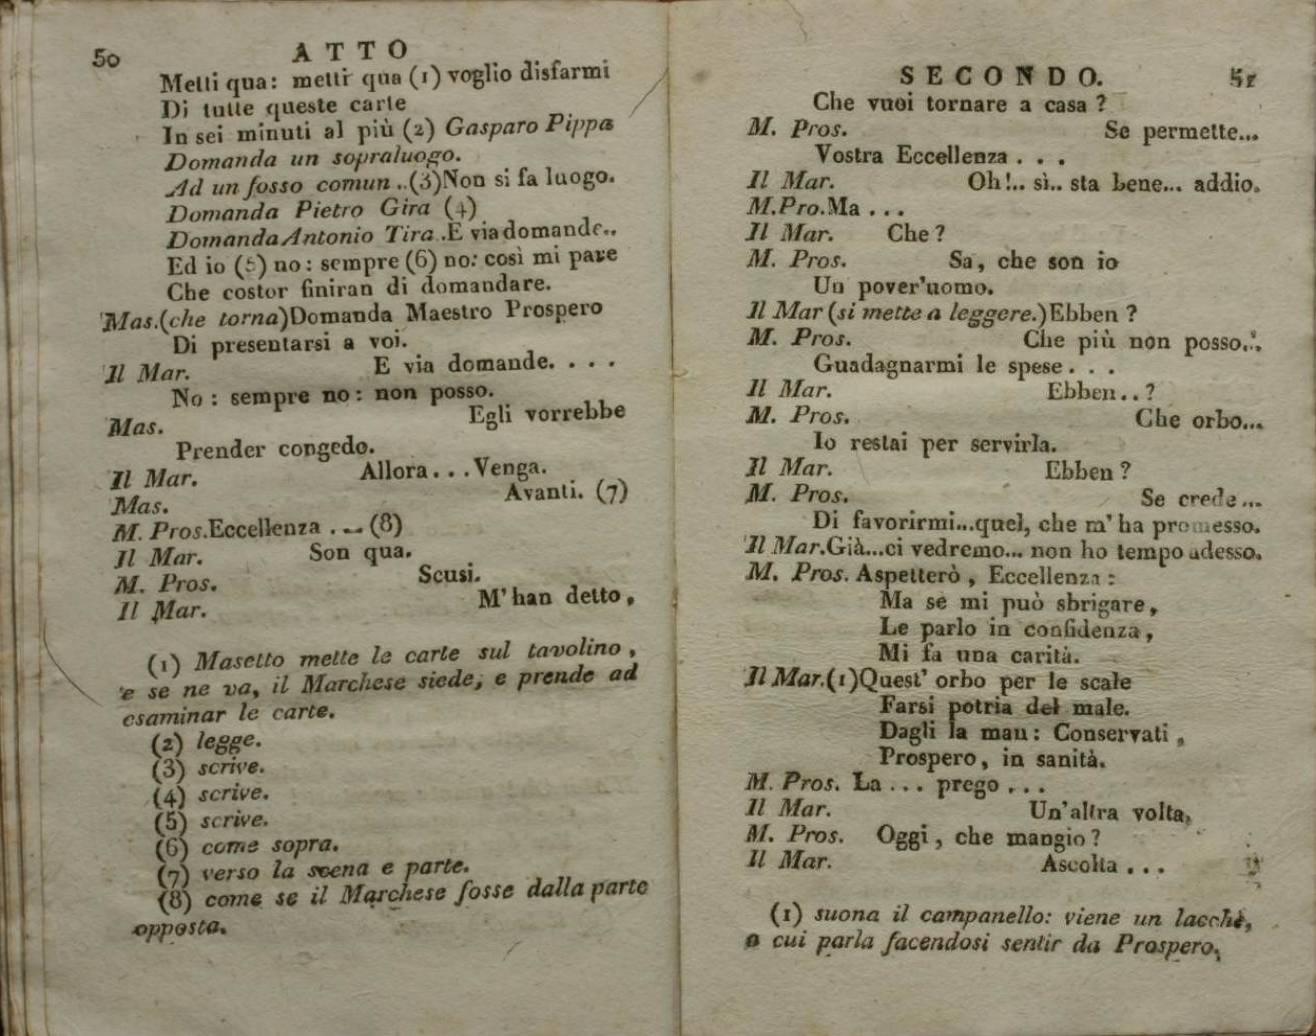 50
ATTO
Metti qua: metti qua (1) voglio disfarmi
Di tutte queste carte
In sei minuti al più (2) Gasparo Pippa
Domanda un sopraluogo.
Ad un fosso comun ..(3)Non si fa luogo.
Domanda Pietro Gira (4)
Domanda Antonio Tira .E via domande..
Ed io (5) no: sempre (6) no: così mi pare
Che costor finiran di domandare.
Mas.(che torna)Domanda Maestro Prospero
Di presentarsi a voi.
Il Mar. E via domande. . . .
No: sempre no: non posso.
Mas. Egli vorrebbe
Prender congedo.
Il Mar. Allora...Venga.
Mas. Avanti. (7)
M. Pros.Eccellenza ... (8)
Il Mar. Son qua.
M. Pros. Scusi.
Il Mar. M'han detto,
(1) Masetto mette le carte sul tavolino,
e se ne va, il Marchese siede, e prende ad
esaminar le carte.
(2) legge.
(3) scrive.
(4) scrive.
(5) scrive.
(6) come sopra.
(7) verso la scena e parte.
(8) come se il Marchese fosse dalla parte
opposta.
SECONDO.
51
Che vuoi tornare a casa?
M. Pros. Se permette...
Vostra Eccellenza . . .
Il Mar. Oh!.. sì.. sta bene... addio.
M.Pro.Ma . . .
Il Mar. Che?
M. Pros. Sa, che son io
Un pover'uomo.
Il Mar (si mette a leggere.)Ebben ?
M. Pros. Che più non posso...
Guadagnarmi le spese . . .
Il Mar. Ebben..?
M. Pros. Che orbo...
Io restai per servirla.
Il Mar. Ebben ?
M. Pros. Se crede...
Di favorirmi...quel, che m'ha promesso.
Il Mar.Già...ci vedremo... non ho tempo adesso.
M. Pros. Aspetterò, Eccellenza:
Ma se mi può sbrigare,
Le parlo in confidenza,
Mi fa una carità.
Il Mar.(1)Quest' orbo per le scale
Farsi potria del male.
Dagli la man: Conservati,
Prospero, in sanità.
M. Pros. La ... prego ...
Il Mar. Un'altra volta,
M. Pros. Oggi, che mangio?
Il Mar. Ascolta ...
(1) suona il campanello: viene un lacchè,
a cui parla facendosi sentir da Prospero.